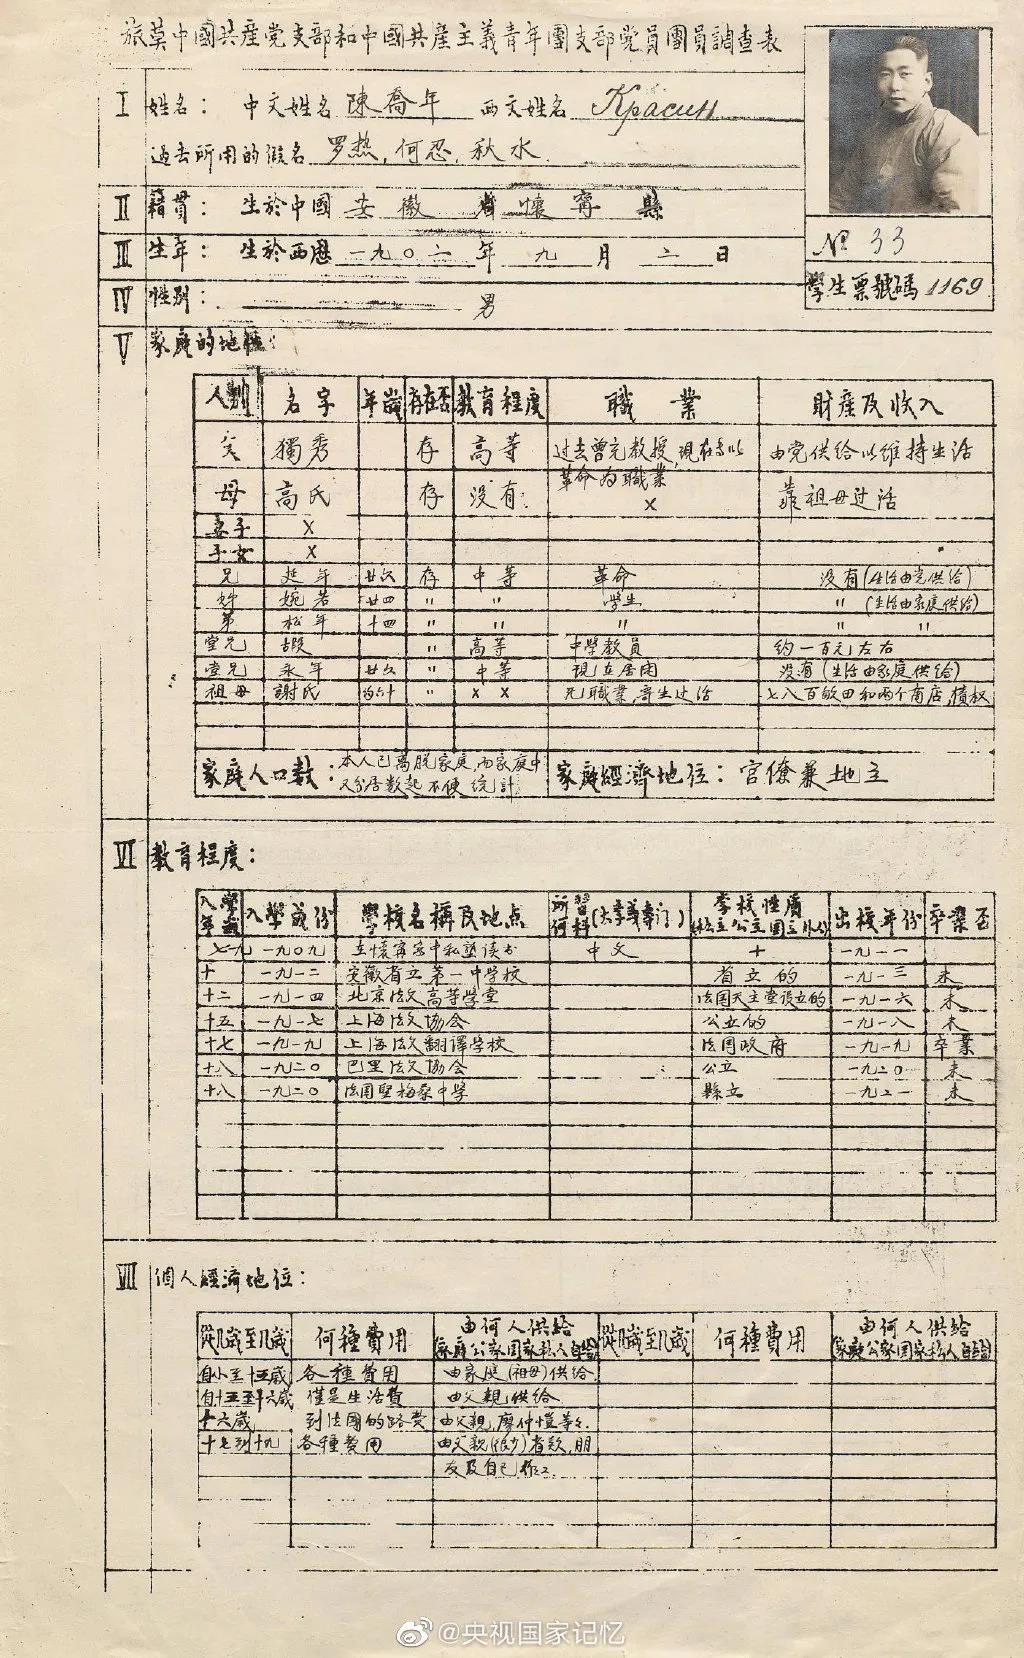 旅莫中國共產党支部和中國共產主義青年團支部党員團員調查表
I 姓名： 中文姓名 陳喬年 西文姓名 Красин
過去所用的假名 罗热，何忍，秋水
II 籍貫： 生於中國 安徽 省 懷寧 縣
III 生年： 生於西歷 一九〇二 年 九 月 二 日
IV 性别： 男
№ 33
學生票號碼 1169
V 家庭的地位：
人别 名字 年歲 存在否 教育程度 職業 財産及收入
父 獨秀 存 高等 过去曾充教授，現在专以革命为職業 由党供给以维持生活
母 高氏 存 没有 × 靠祖母过活
妻子 ×
子女 ×
兄 延年 廿六 存 中等 革命 没有(生活由党供给)
婉若 廿四 〃 〃 学生 〃 (生活由家庭供给)
弟 松年 十四 〃 〃 〃 〃 〃
堂兄 遐 〃 高等 中學教員 约一百元左右
堂兄 永年 廿六 〃 中等 現在居闲 没有(生活由家庭供给)
祖母 謝氏 〃 × × 无職業，寄生过活 七八百畝田和两个商店，債权
家庭人口数：本人已离脱家庭，而家庭中又分居数起不便统計
家庭經濟地位：官僚兼地主
VI 教育程度：
入學年歲 入學年份 學校名稱及地点 所習何科(大学義專门) 学校性質(私立公立国立外人) 出校年份 卒業否
七 一九〇九 在懷寧家中私塾读书 中文 + 一九一一
十 一九一二 安徽省立第一中学校 省立的 一九一三 未
十二 一九一四 北京法文高等學堂 法国天主堂设立的 一九一六 未
十五 一九一七 上海法文協会 公立的 一九一八 未
十七 一九一九 上海法文翻譯学校 法国政府 一九一九 卒業
十八 一九二〇 巴里法文協会 公立 一九二〇 未
十八 一九二〇 法国聖梅桑中学 縣立 一九二一 未
VII 個人經濟地位：
從几歲至几歲 何種費用 由何人供给(家庭公家国家私人自给) 從几歲至几歲 何種費用 由何人供给(家庭公家国家私人自给)
自小至十五歲 各種費用 由家庭(祖母)供给
自十五至十六歲 僅是生活費 由父親供给
十六歲 到法國的路费 由父親，廖仲愷等々
十七到十九 各種費用 由父親(很少)者欵，朋友及自己作工
@央视国家记忆